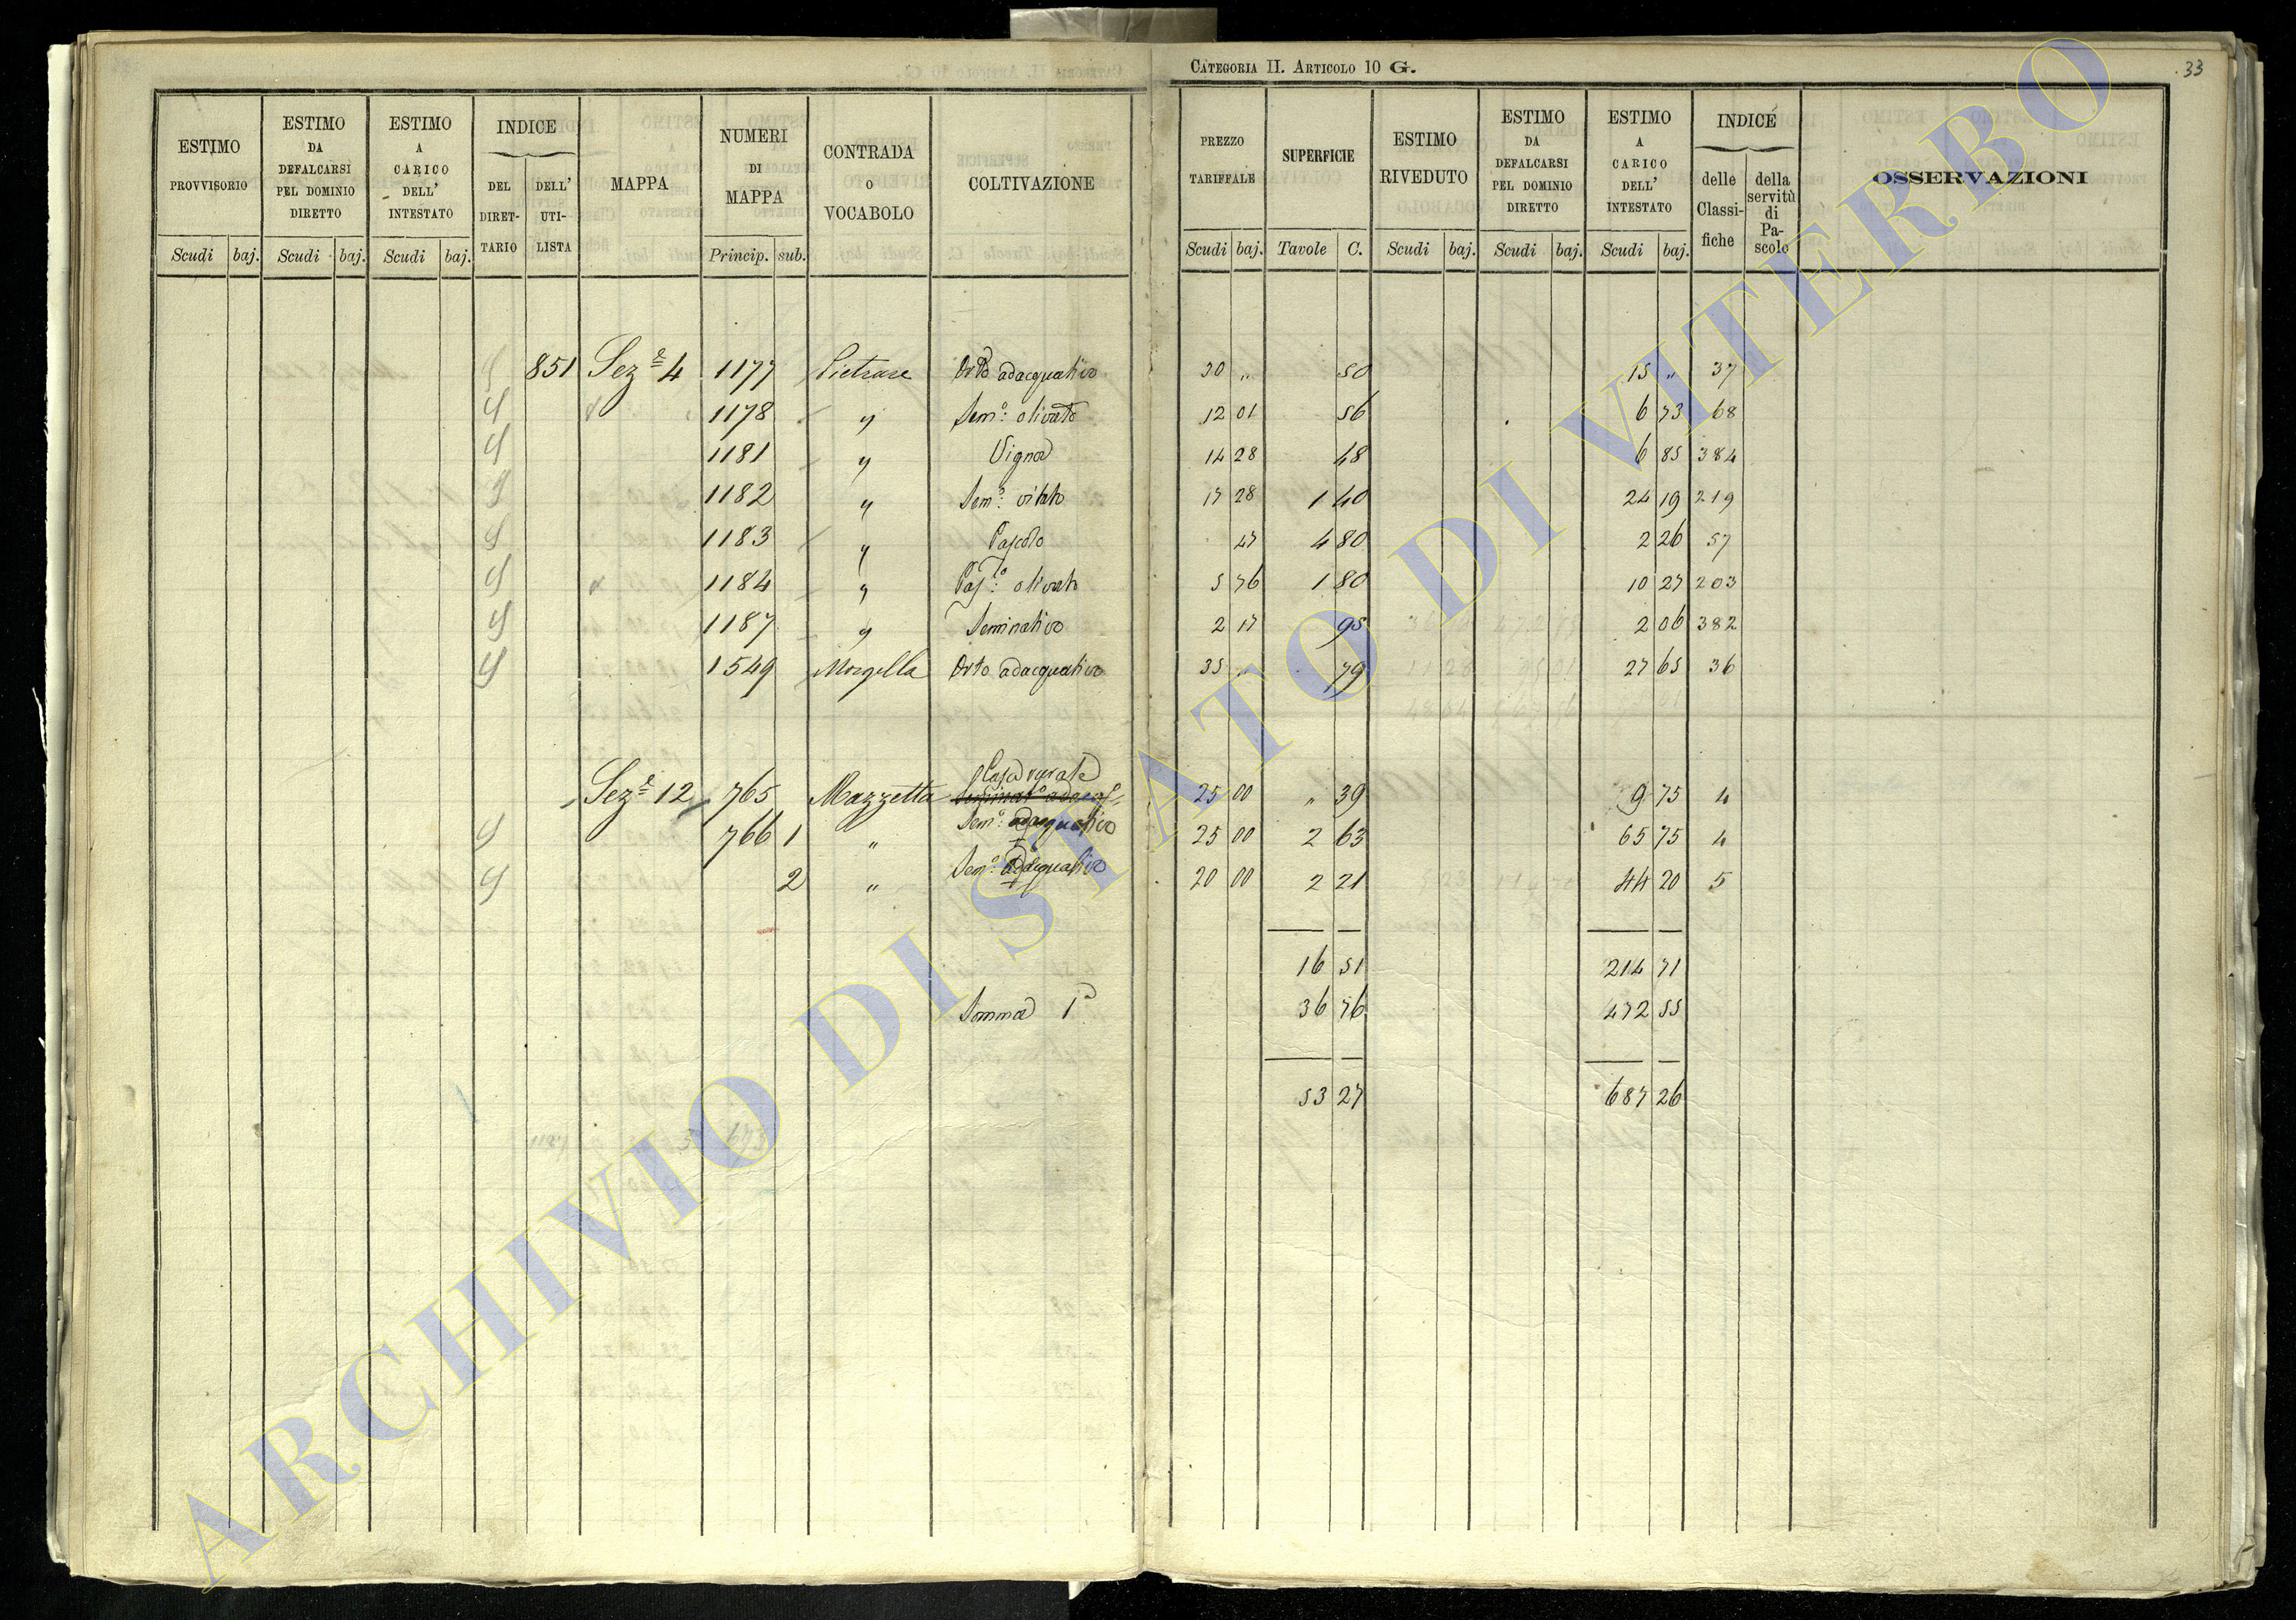 CATEGORIA II. ARTICOLO 10 G. 33
ESTIMO PROVVISORIO Scudi baj.
ESTIMO DA DEFALCARSI PEL DOMINIO DIRETTO Scudi baj.
ESTIMO A CARICO DELL' INTESTATO Scudi baj.
INDICE DEL DIRET- TARIO DELL' UTI- LISTA
MAPPA
NUMERI DI MAPPA Princip. sub.
CONTRADA O VOCABOLO
COLTIVAZIONE
PREZZO TARIFFALE Scudi baj.
SUPERFICIE Tavole C.
ESTIMO RIVEDUTO Scudi baj.
ESTIMO DA DEFALCARSI PEL DOMINIO DIRETTO Scudi baj.
ESTIMO A CARICO DELL' INTESTATO Scudi baj.
INDICE delle Classi- fiche della servitù di Pa- scolo
OSSERVAZIONI
851 Sez.e 4 1177 Pietrare Orto adacquativo 30 " 50 15 " 37
1178 " Sem.o olivato 12 01 56 6 73 68
1181 " Vigna 14 28 48 6 85 384
1182 " Sem.o vitato 17 28 1 40 24 19 219
1183 " Pascolo 47 4 80 2 26 57
1184 " Pas.o olivato 5 76 1 80 10 27 203
1187 " Seminativo 2 17 95 2 06 382
1549 Morgella Orto adacquativo 35 " 79 27 65 36
Casa rurale
Sez.e 12 765 Mazzetta 25 00 " 39 9 75 4
766 1 " Sem.o adacquativo 25 00 2 63 65 75 4
2 " Sem.o adacquativo 20 00 2 21 44 20 5
16 51 214 71
Somma 1a 36 76 472 55
53 27 687 26
ARCHIVIO DI STATO DI VITERBO